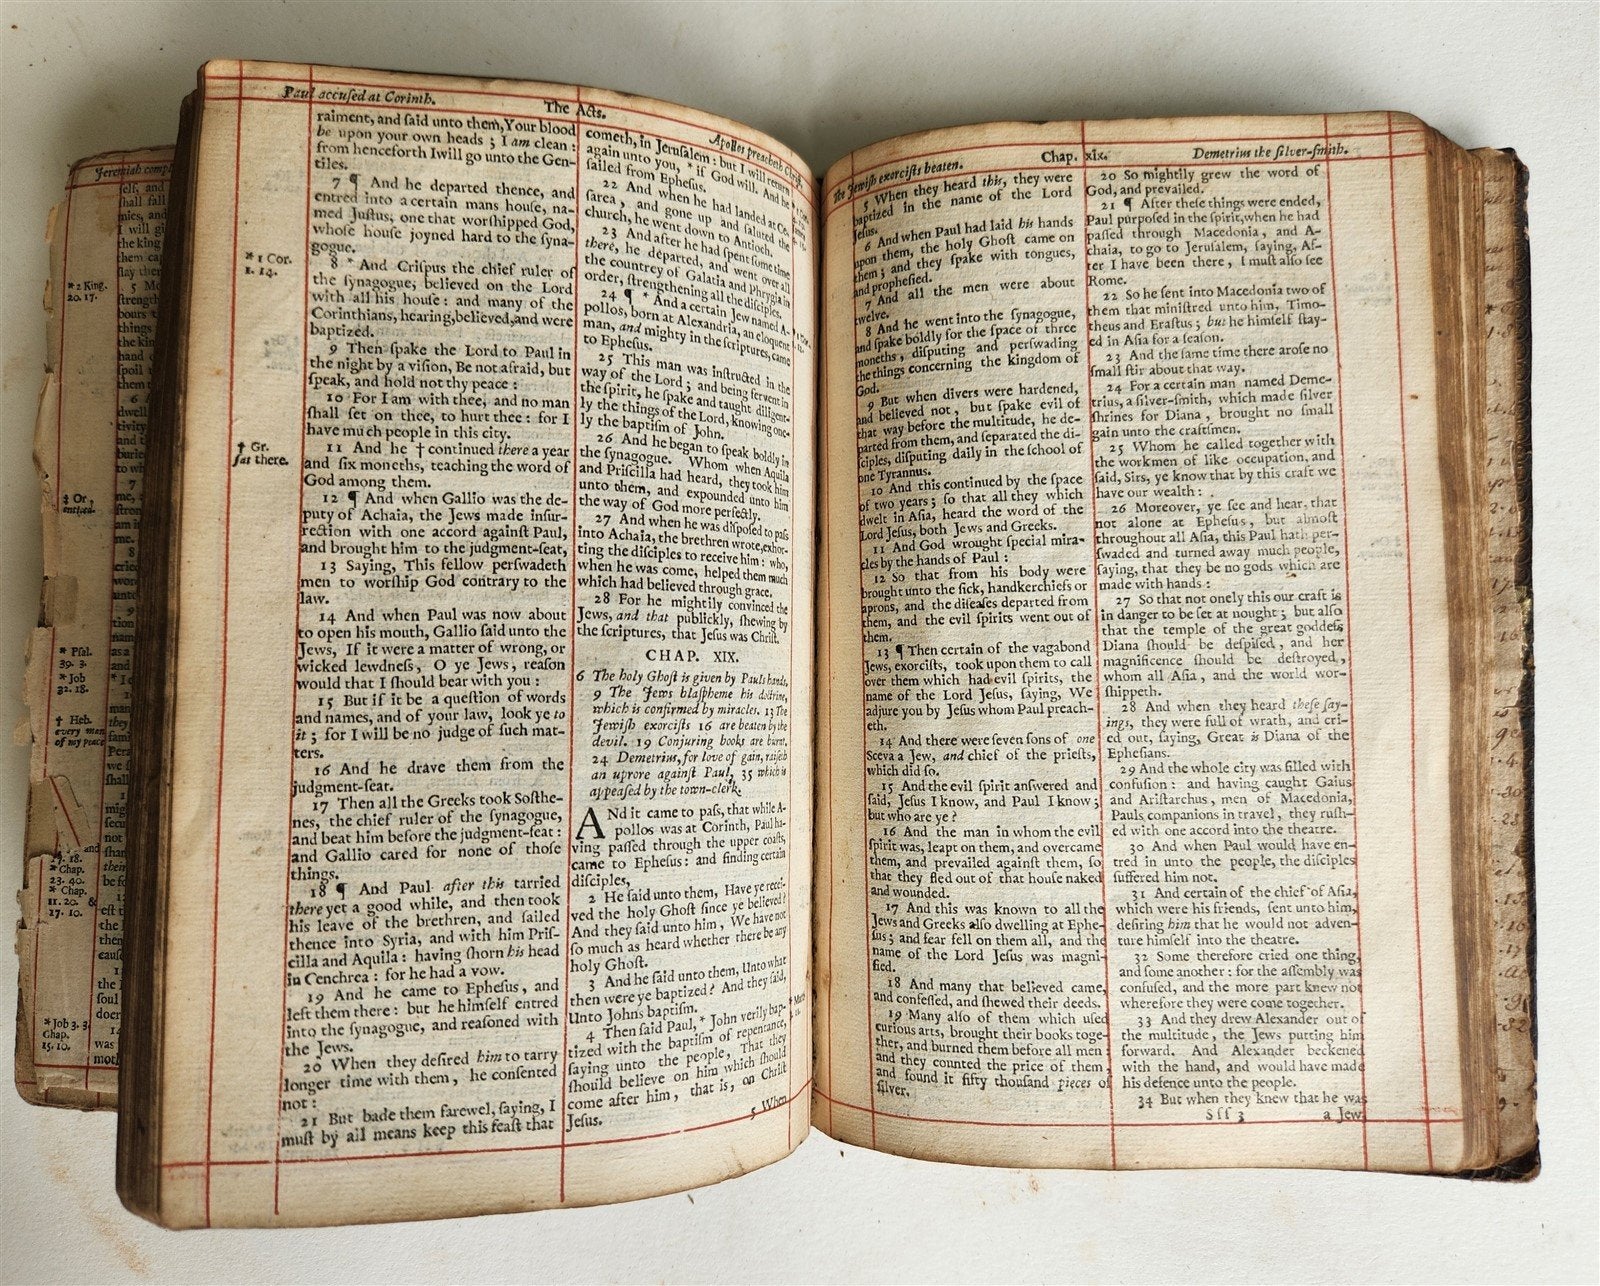 Paul accuſed at Corinth.
The Acts.
Apollos preacheth Chriſt.
raiment, and ſaid unto them, Your blood
be upon your own heads ; I am clean :
from henceforth I will go unto the Gen-
tiles.
7 ¶ And he departed thence, and
entred into a certain mans houſe, na-
med Juſtus, one that worſhipped God,
whoſe houſe joyned hard to the ſyna-
gogue.
8 * And Criſpus the chief ruler of
the ſynagogue, believed on the Lord
with all his houſe : and many of the
Corinthians, hearing, believed, and were
baptized.
9 Then ſpake the Lord to Paul in
the night by a viſion, Be not afraid, but
ſpeak, and hold not thy peace :
10 For I am with thee, and no man
ſhall ſet on thee, to hurt thee : for I
have much people in this city.
11 And he † continued there a year
and ſix moneths, teaching the word of
God among them.
12 ¶ And when Gallio was the de-
puty of Achaia, the Jews made inſur-
rection with one accord againſt Paul,
and brought him to the judgment-ſeat,
13 Saying, This fellow perſwadeth
men to worſhip God contrary to the
law.
14 And when Paul was now about
to open his mouth, Gallio ſaid unto the
Jews, If it were a matter of wrong, or
wicked lewdneſs, O ye Jews, reaſon
would that I ſhould bear with you :
15 But if it be a queſtion of words
and names, and of your law, look ye to
it ; for I will be no judge of ſuch mat-
ters.
16 And he drave them from the
judgment-ſeat.
17 Then all the Greeks took Soſthe-
nes, the chief ruler of the ſynagogue,
and beat him before the judgment-ſeat :
and Gallio cared for none of thoſe
things.
18 ¶ And Paul after this tarried
there yet a good while, and then took
his leave of the brethren, and ſailed
thence into Syria, and with him Priſ-
cilla and Aquila : having ſhorn his head
in Cenchrea : for he had a vow.
19 And he came to Epheſus, and
left them there : but he himſelf entred
into the ſynagogue, and reaſoned with
the Jews.
20 When they deſired him to tarry
longer time with them, he conſented
not :
21 But bade them farewel, ſaying, I
muſt by all means keep this feaſt that
* 1 Cor.
1. 14.
† Gr.
ſat there.
cometh, in Jeruſalem : but I will return
again unto you, * if God will. And he
ſailed from Epheſus.
22 And when he had landed at Ce-
ſarea, and gone up and ſaluted the
church, he went down to Antioch.
23 And after he had ſpent ſome time
there, he departed, and went over all
the countrey of Galatia and Phrygia in
order, ſtrengthening all the diſciples.
24 ¶ * And a certain Jew named A-
pollos, born at Alexandria, an eloquent
man, and mighty in the ſcriptures, came
to Epheſus.
25 This man was inſtructed in the
way of the Lord ; and being fervent in
the ſpirit, he ſpake and taught diligent-
ly the things of the Lord, knowing one-
ly the baptiſm of John.
26 And he began to ſpeak boldly in
the ſynagogue. Whom when Aquila
and Priſcilla had heard, they took him
unto them, and expounded unto him
the way of God more perfectly.
27 And when he was diſpoſed to paſs
into Achaia, the brethren wrote, exhor-
ting the diſciples to receive him : who,
when he was come, helped them much
which had believed through grace.
28 For he mightily convinced the
Jews, and that publickly, ſhewing by
the ſcriptures, that Jeſus was Chriſt.
CHAP. XIX.
6 The holy Ghoſt is given by Pauls hands,
9 The Jews blaſpheme his doctrine,
which is confirmed by miracles. 13 The
Jewiſh exorciſts 16 are beaten by the
devil. 19 Conjuring books are burnt.
24 Demetrius, for love of gain, raiſeth
an uprore againſt Paul, 35 which is
appeaſed by the town-clerk.
ANd it came to paſs, that while A-
pollos was at Corinth, Paul ha-
ving paſſed through the upper coaſts,
came to Epheſus : and finding certain
diſciples,
2 He ſaid unto them, Have ye recei-
ved the holy Ghoſt ſince ye believed ?
And they ſaid unto him, We have not
ſo much as heard whether there be any
holy Ghoſt.
3 And he ſaid unto them, Unto what
then were ye baptized ? And they ſaid,
Unto Johns baptiſm.
4 Then ſaid Paul, * John verily bap-
tized with the baptiſm of repentance,
ſaying unto the people, That they
ſhould believe on him which ſhould
come after him, that is, on Chriſt
Jeſus.
5 When
The Jewiſh exorciſts beaten.
Chap. xix.
Demetrius the ſilver-ſmith.
5 When they heard this, they were
baptized in the name of the Lord
Jeſus.
6 And when Paul had laid his hands
upon them, the holy Ghoſt came on
them ; and they ſpake with tongues,
and propheſied.
7 And all the men were about
twelve.
8 And he went into the ſynagogue,
and ſpake boldly for the ſpace of three
moneths, diſputing and perſwading
the things concerning the kingdom of
God.
9 But when divers were hardened,
and believed not, but ſpake evil of
that way before the multitude, he de-
parted from them, and ſeparated the di-
ſciples, diſputing daily in the ſchool of
one Tyrannus.
10 And this continued by the ſpace
of two years ; ſo that all they which
dwelt in Aſia, heard the word of the
Lord Jeſus, both Jews and Greeks.
11 And God wrought ſpecial mira-
cles by the hands of Paul :
12 So that from his body were
brought unto the ſick, handkerchiefs or
aprons, and the diſeaſes departed from
them, and the evil ſpirits went out of
them.
13 ¶ Then certain of the vagabond
Jews, exorciſts, took upon them to call
over them which had evil ſpirits, the
name of the Lord Jeſus, ſaying, We
adjure you by Jeſus whom Paul preach-
eth.
14 And there were ſeven ſons of one
Sceva a Jew, and chief of the prieſts,
which did ſo.
15 And the evil ſpirit anſwered and
ſaid, Jeſus I know, and Paul I know ;
but who are ye ?
16 And the man in whom the evil
ſpirit was, leapt on them, and overcame
them, and prevailed againſt them, ſo
that they fled out of that houſe naked
and wounded.
17 And this was known to all the
Jews and Greeks alſo dwelling at Ephe-
ſus ; and fear fell on them all, and the
name of the Lord Jeſus was magni-
fied.
18 And many that believed came,
and confeſſed, and ſhewed their deeds.
19 Many alſo of them which uſed
curious arts, brought their books toge-
ther, and burned them before all men :
and they counted the price of them,
and found it fifty thouſand pieces of
ſilver.
20 So mightily grew the word of
God, and prevailed.
21 ¶ After theſe things were ended,
Paul purpoſed in the ſpirit, when he had
paſſed through Macedonia, and A-
chaia, to go to Jeruſalem, ſaying, Af-
ter I have been there, I muſt alſo ſee
Rome.
22 So he ſent into Macedonia two of
them that miniſtred unto him, Timo-
theus and Eraſtus ; but he himſelf ſtay-
ed in Aſia for a ſeaſon.
23 And the ſame time there aroſe no
ſmall ſtir about that way.
24 For a certain man named Deme-
trius, a ſilver-ſmith, which made ſilver
ſhrines for Diana, brought no ſmall
gain unto the craftſmen.
25 Whom he called together with
the workmen of like occupation, and
ſaid, Sirs, ye know that by this craft we
have our wealth :
26 Moreover, ye ſee and hear, that
not alone at Epheſus, but almoſt
throughout all Aſia, this Paul hath per-
ſwaded and turned away much people,
ſaying, that they be no gods which are
made with hands :
27 So that not onely this our craft is
in danger to be ſet at nought ; but alſo
that the temple of the great goddeſs
Diana ſhould be deſpiſed, and her
magnificence ſhould be deſtroyed,
whom all Aſia, and the world wor-
ſhippeth.
28 And when they heard theſe ſay-
ings, they were full of wrath, and cri-
ed out, ſaying, Great is Diana of the
Epheſians.
29 And the whole city was filled with
confuſion : and having caught Gaius
and Ariſtarchus, men of Macedonia,
Pauls companions in travel, they ruſh-
ed with one accord into the theatre.
30 And when Paul would have en-
tred in unto the people, the diſciples
ſuffered him not.
31 And certain of the chief of Aſia,
which were his friends, ſent unto him,
deſiring him that he would not adven-
ture himſelf into the theatre.
32 Some therefore cried one thing,
and ſome another : for the aſſembly was
confuſed, and the more part knew not
wherefore they were come together.
33 And they drew Alexander out of
the multitude, the Jews putting him
forward. And Alexander beckened
with the hand, and would have made
his defence unto the people.
34 But when they knew that he was
Sſſ 3
a Jew,
Jeremiah
* 2 King.
20. 17.
‡ Or,
* Pſal.
39. 3.
* Job
32. 18.
† Heb.
every man
of my peace
* Chap.
23. 40.
* Chap.
11. 20. &
17. 10.
* Job 3. 3.
Chap.
15. 10.